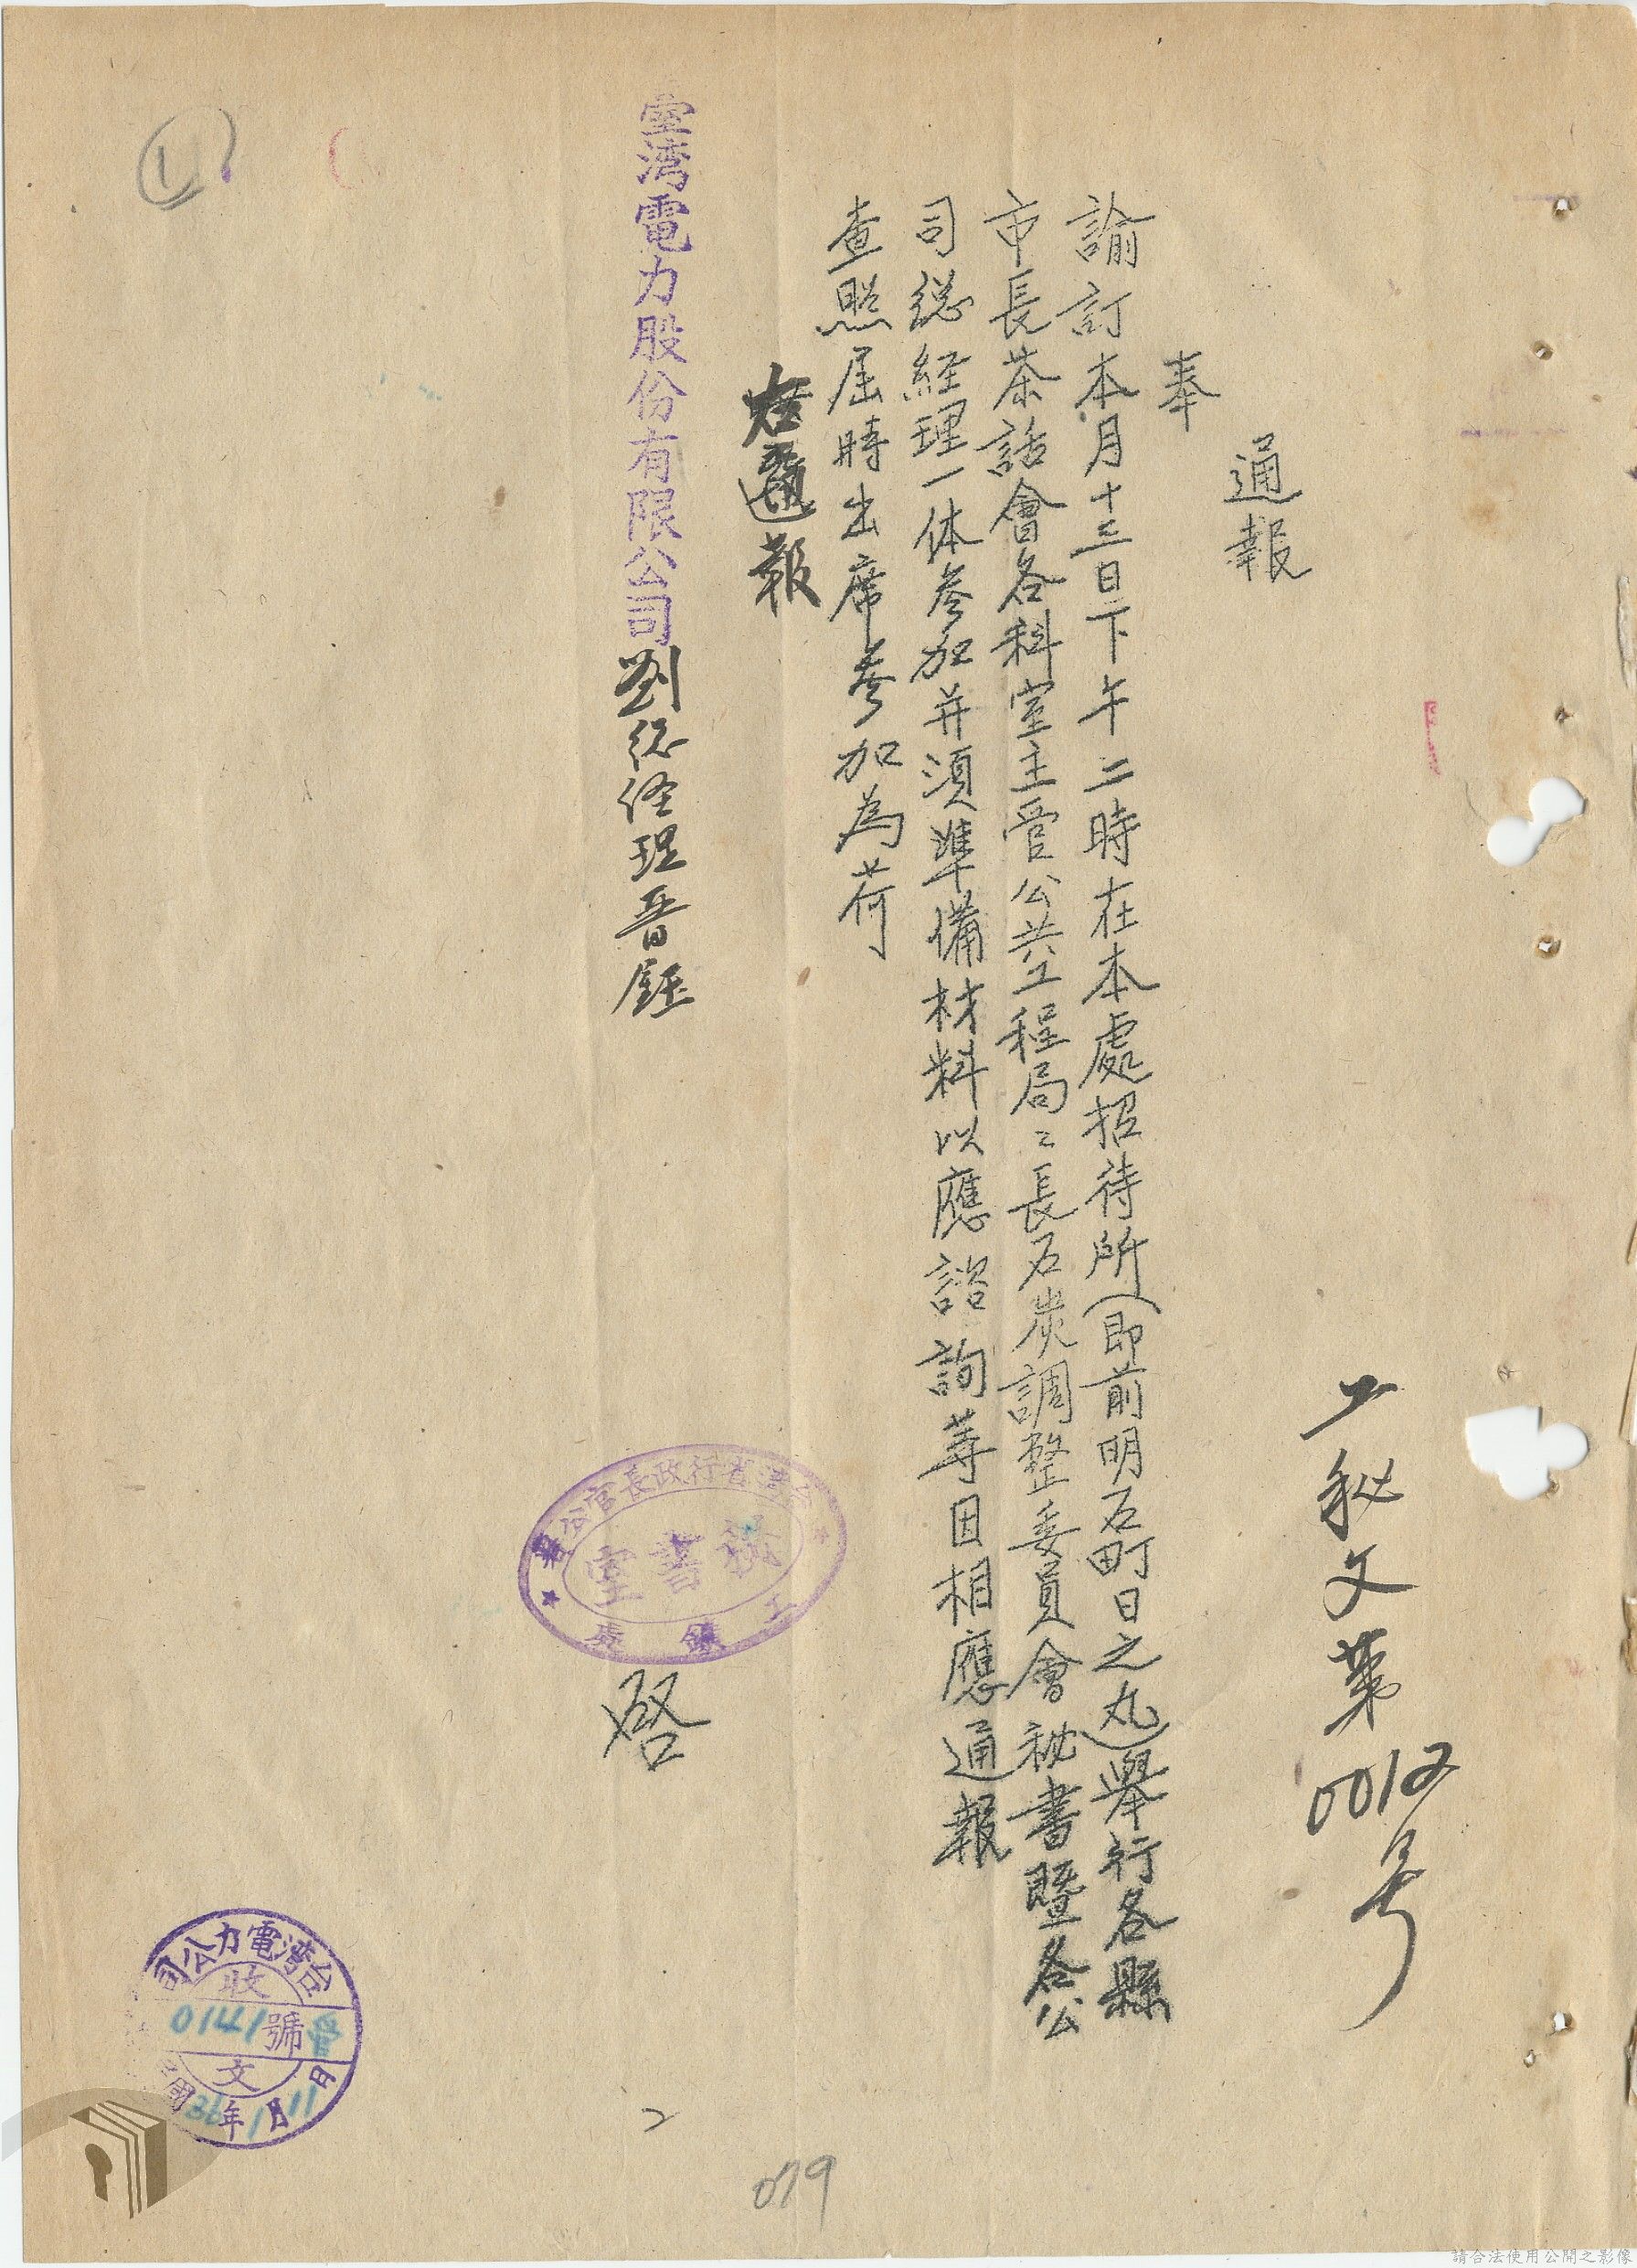 通報
工秘文第0012号
奉
諭訂本月十三日下午二時在本處招待所(即前明石町日之丸)舉行各縣
市長茶話會各科室主管公共工程局〻長石炭調整委員會秘書暨各公
司総経理一体参加并須準備材料以應諮詢等因相應通報
查照屆時出席参加為荷
右通報
臺湾電力股份有限公司劉総経理晋鈺
臺灣省行政長官公署
秘書室
工鑛處
啓
台湾電力公司
收
0141號
文
36年1月11日
1
079
請合法使用公開之影像